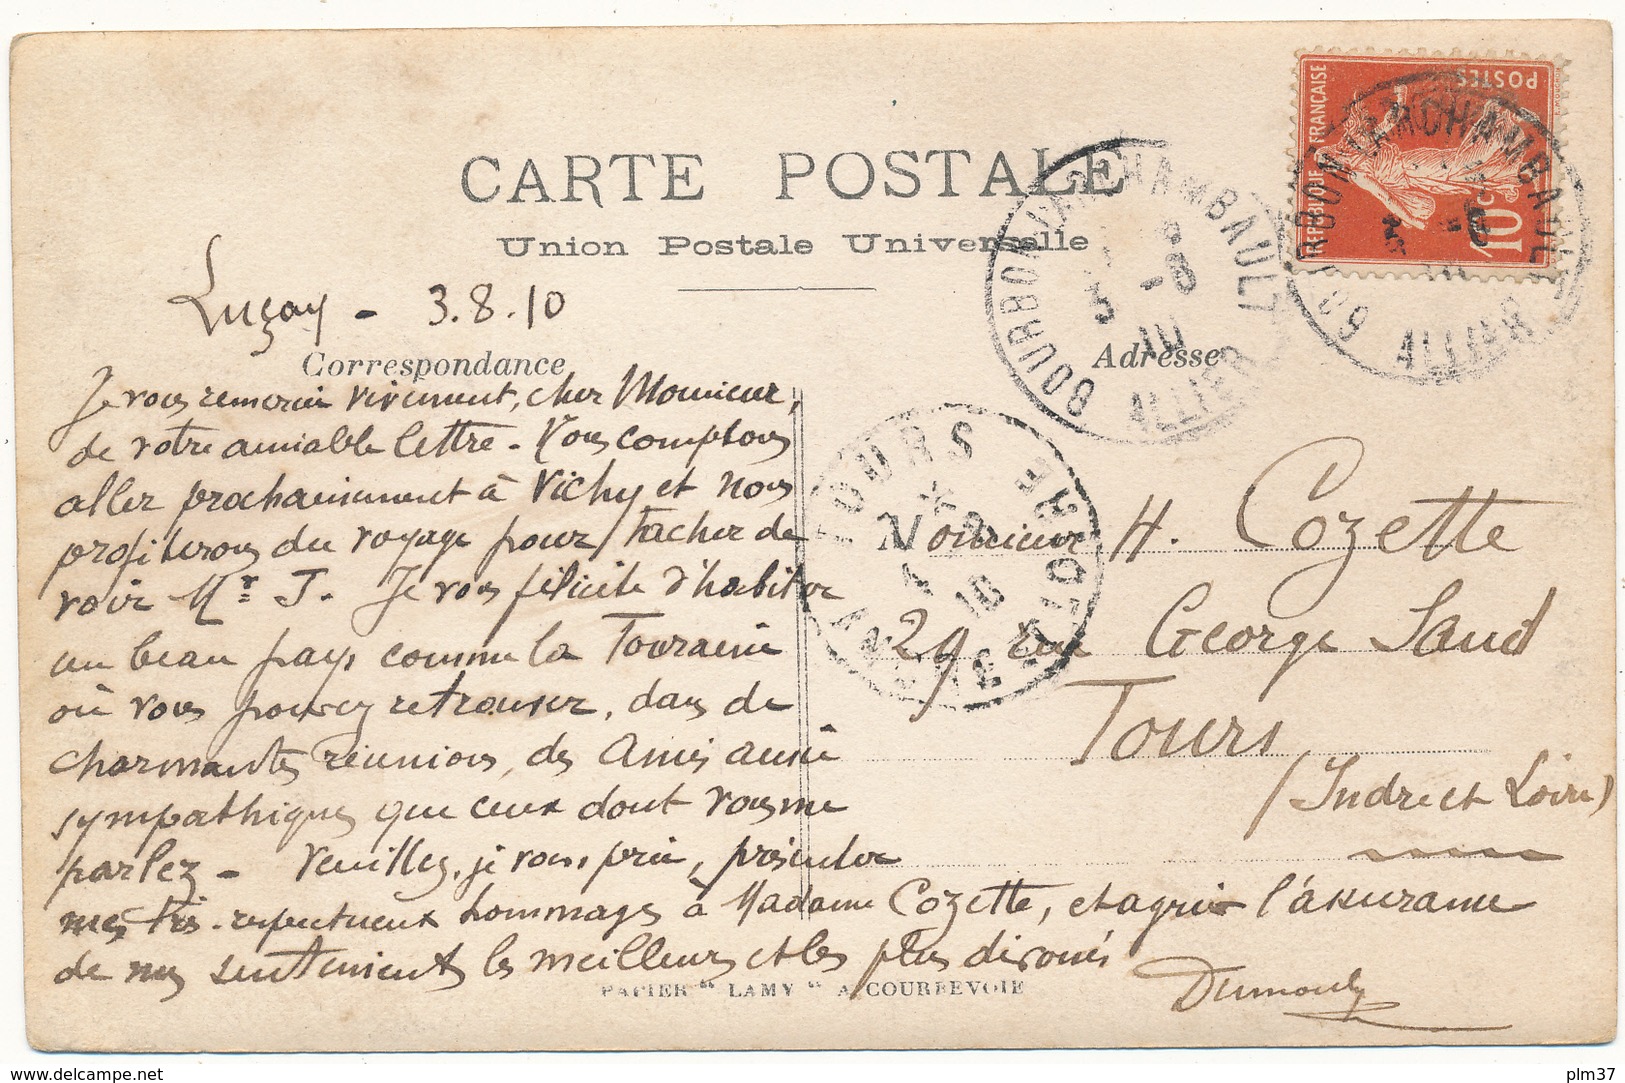 CARTE POSTALE
Union Postale Universelle
Luçay - 3.8.10
Correspondance
Adresse
Je vous remercie vivement, cher Monsieur,
de votre aimable lettre - Nous comptons
aller prochainement à Vichy et nous
profiterons du voyage pour tacher de
voir Mr. J. Je vous félicite d'habiter
un beau pays comme la Touraine
où vous pouvez retrouver, dans de
charmantes réunions, des amis aussi
sympathiques que ceux dont vous me
parlez - Veuillez, je vous prie, présenter
mes très respectueux hommages à Madame Cozette, et agréer l'assurance
de mes sentiments les meilleurs et les plus dévoués
Monsieur H. Cozette
29 rue George Sand
Tours
(Indre et Loire)
PAPIER "LAMY" A COURBEVOIE
REPUBLIQUE FRANÇAISE
POSTES
10c
BOURBON-L'ARCHAMBAULT
3 -8
10
ALLIER
BOURBON-L'ARCHAMBAULT
ALLIER
TOURS
10
delcampe.net
plm37